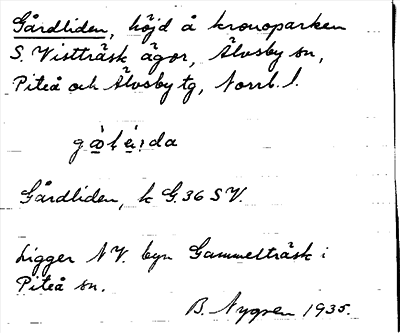 Gårdliden, höjd å kronoparken
S. Vistträsk ägor, Älvsby sn,
Piteå och Älvsby tg, Norrb. l.
Gårdliden, k G. 36 S V.
Ligger N V. byn Gammelträsk i
Piteå sn.
B. Nygren 1935.